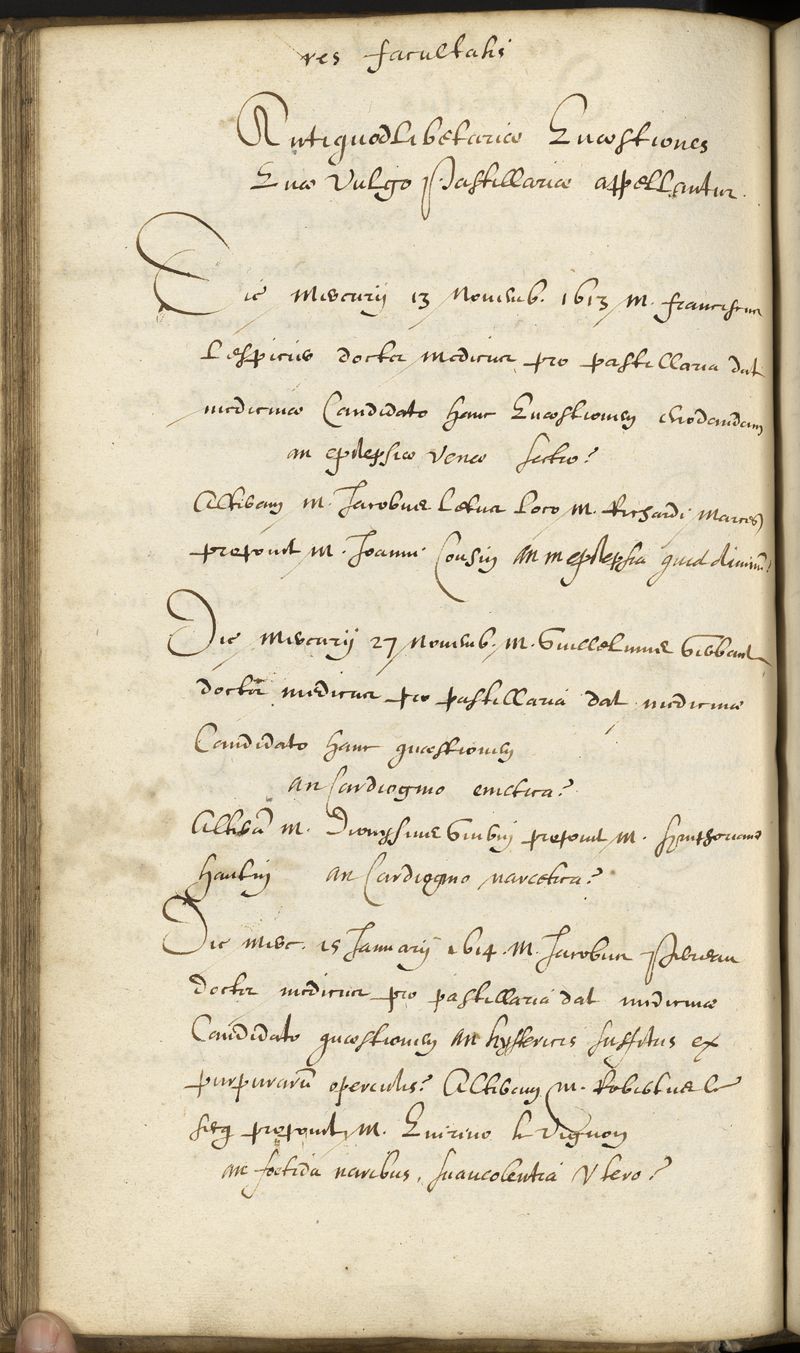 res facultatis
Antiquodlibetariæ Quæstiones
Quæ Vulgo Pastillariæ appellantur.
Die Mercurij 13 Novemb. 1613 M. franciscus
Lespicier doctor medicus pro pastillaria dat
medicinæ Candidato hanc Quæstionem enodandam
an epilepsiæ Venæ sectio?
Alteram M. Jacobus Letus loco M. Richardi
preponit M. Joanni Cousin an in epilepsia quid divinũ?
Die Mercurij 27 Novemb. M. Guillelmus
doctor medicus pro pastillariâ dat medicinæ
Candidato hanc quæstionem
an Cardiogmo emetica?
Alterã M. Dionysius Guerin preponit M.
hautin an Cardiogmo narcotica?
Die Merc. 15 Januarij 1614. M. Jacobus Perreau
doctor medicus pro pastillariâ dat medicinæ
Candidato quæstionem an hystericis suffitus ex
purpurarũ operculis? Alteram M. Robertus le
preponit M. Quirino le Vignon
an foetida naribus, suaveolentia Utero?